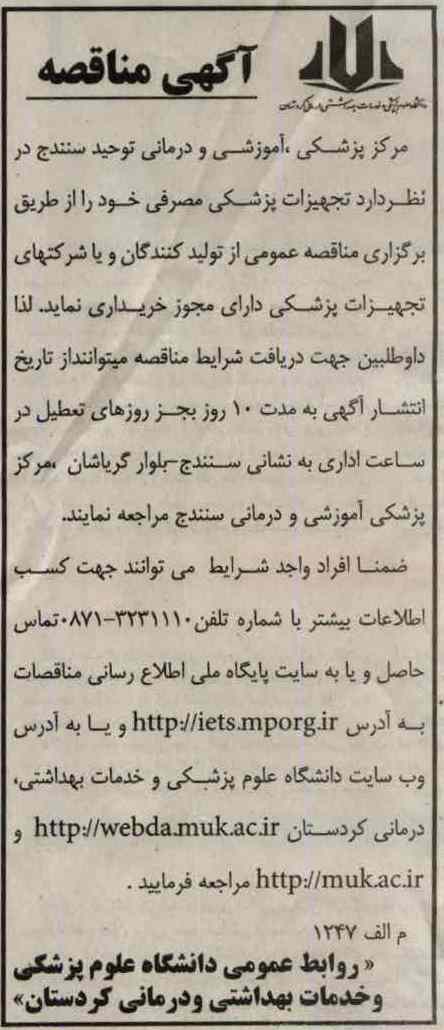 دانشگاه علوم پزشکی و خدمات بهداشتی درمانی کردستان
آگهی مناقصه
مرکز پزشکی ،آموزشی و درمانی توحید سنندج در
نظردارد تجهیزات پزشکی مصرفی خود را از طریق
برگزاری مناقصه عمومی از تولید کنندگان و یا شرکتهای
تجهیزات پزشکی دارای مجوز خریداری نماید. لذا
داوطلبین جهت دریافت شرایط مناقصه میتواننداز تاریخ
انتشار آگهی به مدت ۱۰ روز بجز روزهای تعطیل در
ساعت اداری به نشانی سنندج-بلوار گریاشان ،مرکز
پزشکی آموزشی و درمانی سنندج مراجعه نمایند.
ضمنا افراد واجد شرایط می توانند جهت کسب
اطلاعات بیشتر با شماره تلفن۳۲۳۱۱۱۰-۰۸۷۱تماس
حاصل و یا به سایت پایگاه ملی اطلاع رسانی مناقصات
به آدرس http://iets.mporg.ir و یا به آدرس
وب سایت دانشگاه علوم پزشکی و خدمات بهداشتی،
درمانی کردستان http://webda.muk.ac.ir و
http://muk.ac.ir مراجعه فرمایید .
م الف ۱۲۴۷
« روابط عمومی دانشگاه علوم پزشکی
وخدمات بهداشتی ودرمانی کردستان»